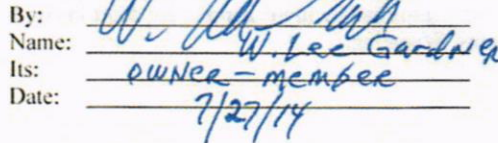 By:
Name: W. Lee Gardner
Its: OWNER - member
Date: 7/27/14